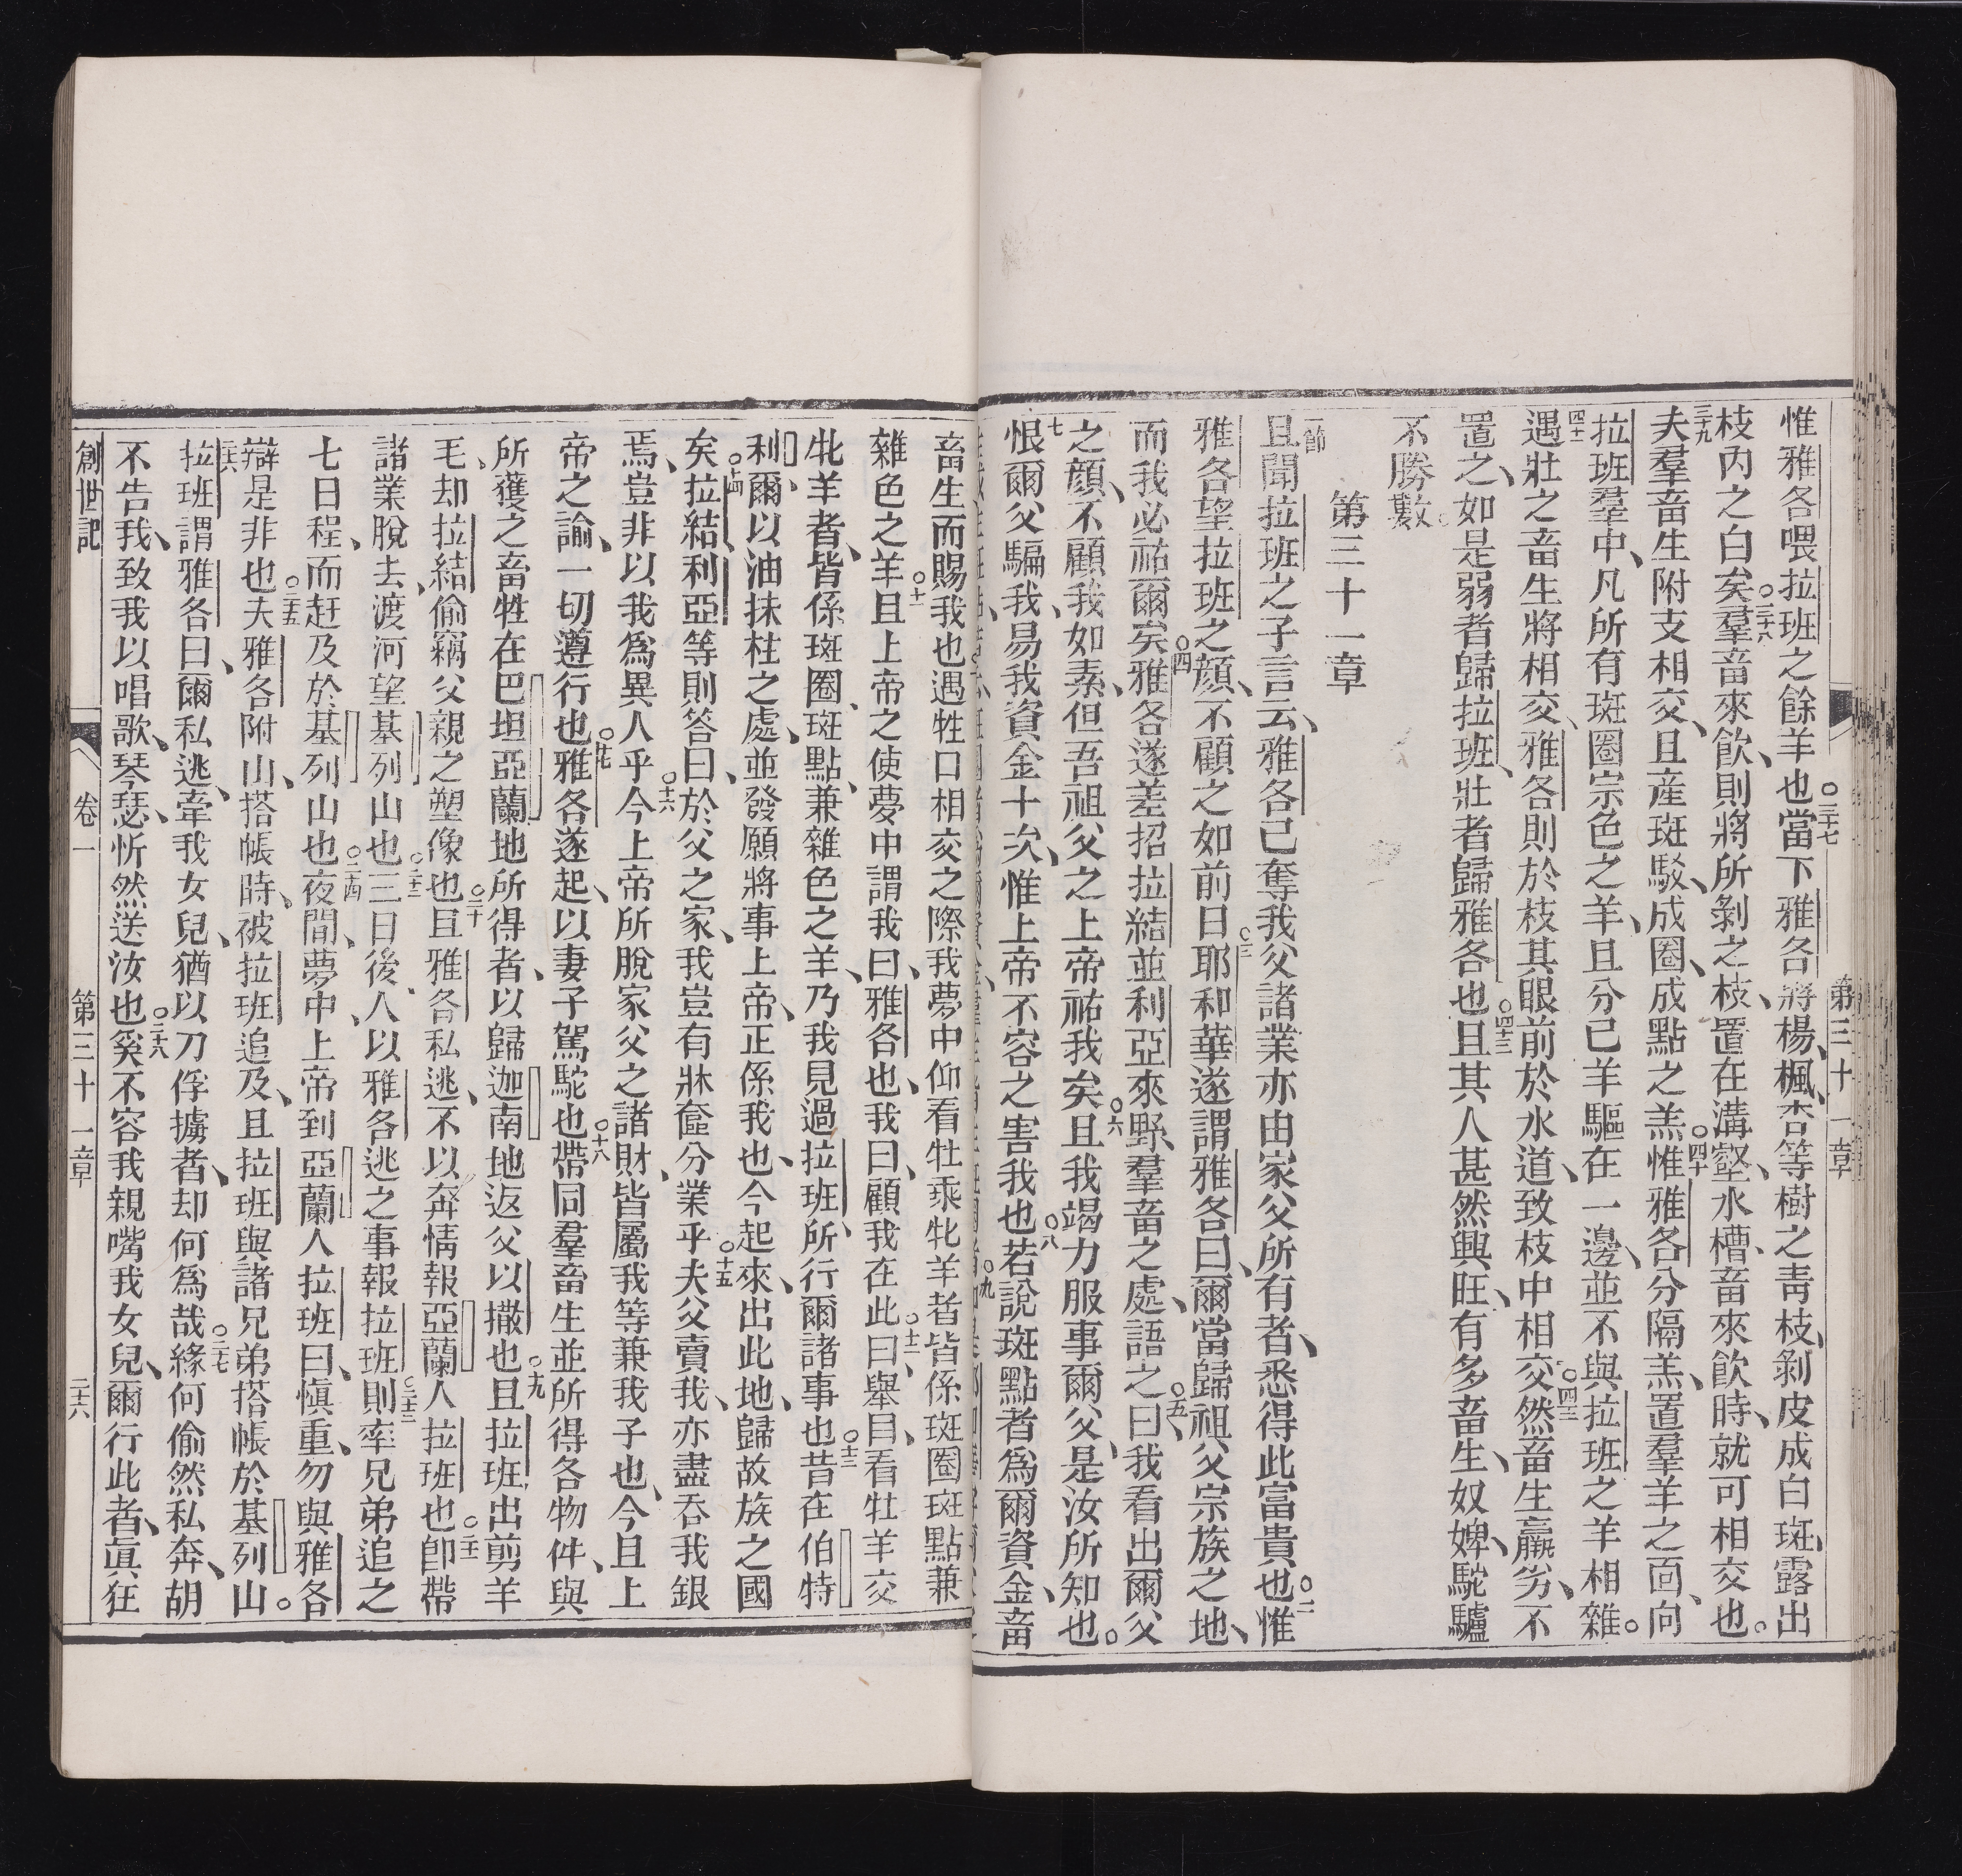 惟雅各喂拉班之餘羊也○三十七當下雅各將楊、楓、杏等樹之靑枝、剝皮成白斑、露出
枝內之白矣○三十八羣畜來飮、則將所剝之枝、置在溝壑、水槽、畜來飮時、就可相交也。
三十九夫羣畜生附支相交、且產斑駁、成圈、成點之羔○四十惟雅各分隔羔、置羣羊之面、向
拉班羣中、凡所有斑圈宗色之羊、且分己羊驅在一邊、並不與拉班之羊相雜。
四十一遇壯之畜生將相交、雅各則於枝其眼前於水道、致枝中相交○四十二然畜生羸劣、不
置之、如是弱者歸拉班、壯者歸雅各也○四十三且其人甚然興旺、有多畜生、奴婢、駝驢
不勝數。
第三十一章
一節且聞拉班之子言云、雅各己奪我父諸業亦由家父所有者、悉得此富貴也○二惟
雅各望拉班之顏、不顧之如前日○三耶和華遂謂雅各曰、爾當歸祖父宗族之地、
而我必祐爾矣○四雅各遂差招拉結並利亞來野、羣畜之處、語之曰○五、我看出爾父
之顏、不顧我如素、但吾祖父之上帝祐我矣○六且我竭力服事爾父、是汝所知也。
七恨爾父騙我、易我資金十次、惟上帝不容之害我也○八若說斑點者爲爾資金、畜
畜生而賜我也遇牲口相交之際我夢中仰看牡乘牝羊者皆係斑圈斑點兼
雜色之羊○十一且上帝之使夢中謂我曰、雅各也、我曰、顧我在此○十二曰、舉目、看牡羊交
牝羊者、皆係斑圈、斑點、兼雜色之羊、乃我見過拉班、所行爾諸事也○十三昔在伯特
利爾、以油抹柱之處、並發願將事上帝、正係我也、今起來、出此地、歸故族之國
矣○十四拉結、利亞等則答曰、於父之家、我豈有牀奩分業乎○十五夫父賣我、亦盡吞我銀
焉、豈非以我爲異人乎○十六今上帝所脫家父之諸財、皆屬我等兼我子也、今且上
帝之諭、一切遵行也○十七雅各遂起、以妻子駕駝也○十八帶同羣畜生並所得各物件、與
所獲之畜牲在巴坦亞蘭地所得者、以歸迦南地返父以撒也○十九且拉班出剪羊
毛、却拉結偷竊父親之塑像也○二十且雅各私逃、不以奔情報亞蘭人拉班也○二十一卽帶
諸業脫去、渡河望基列山也○二十二三日後、人以雅各逃之事報拉班○二十三則率兄弟追之
七日程、而赶及於基列山也○二十四夜間、夢中、上帝到亞蘭人拉班曰、愼重、勿與雅各
辯是非也○二十五夫雅各附山、搭帳時、被拉班追及、且拉班與諸兄弟搭帳於基列山。
二十六拉班謂雅各曰、爾私逃、牽我女兒、猶以刀俘擄者、却何爲哉○二十七緣何偷然私奔、胡
不告我、致我以唱歌、琴瑟、忻然送汝也○二十八奚不容我親嘴我女兒、爾行此者、眞狂
創世記 卷一 第三十一章 二十六
第三十一章